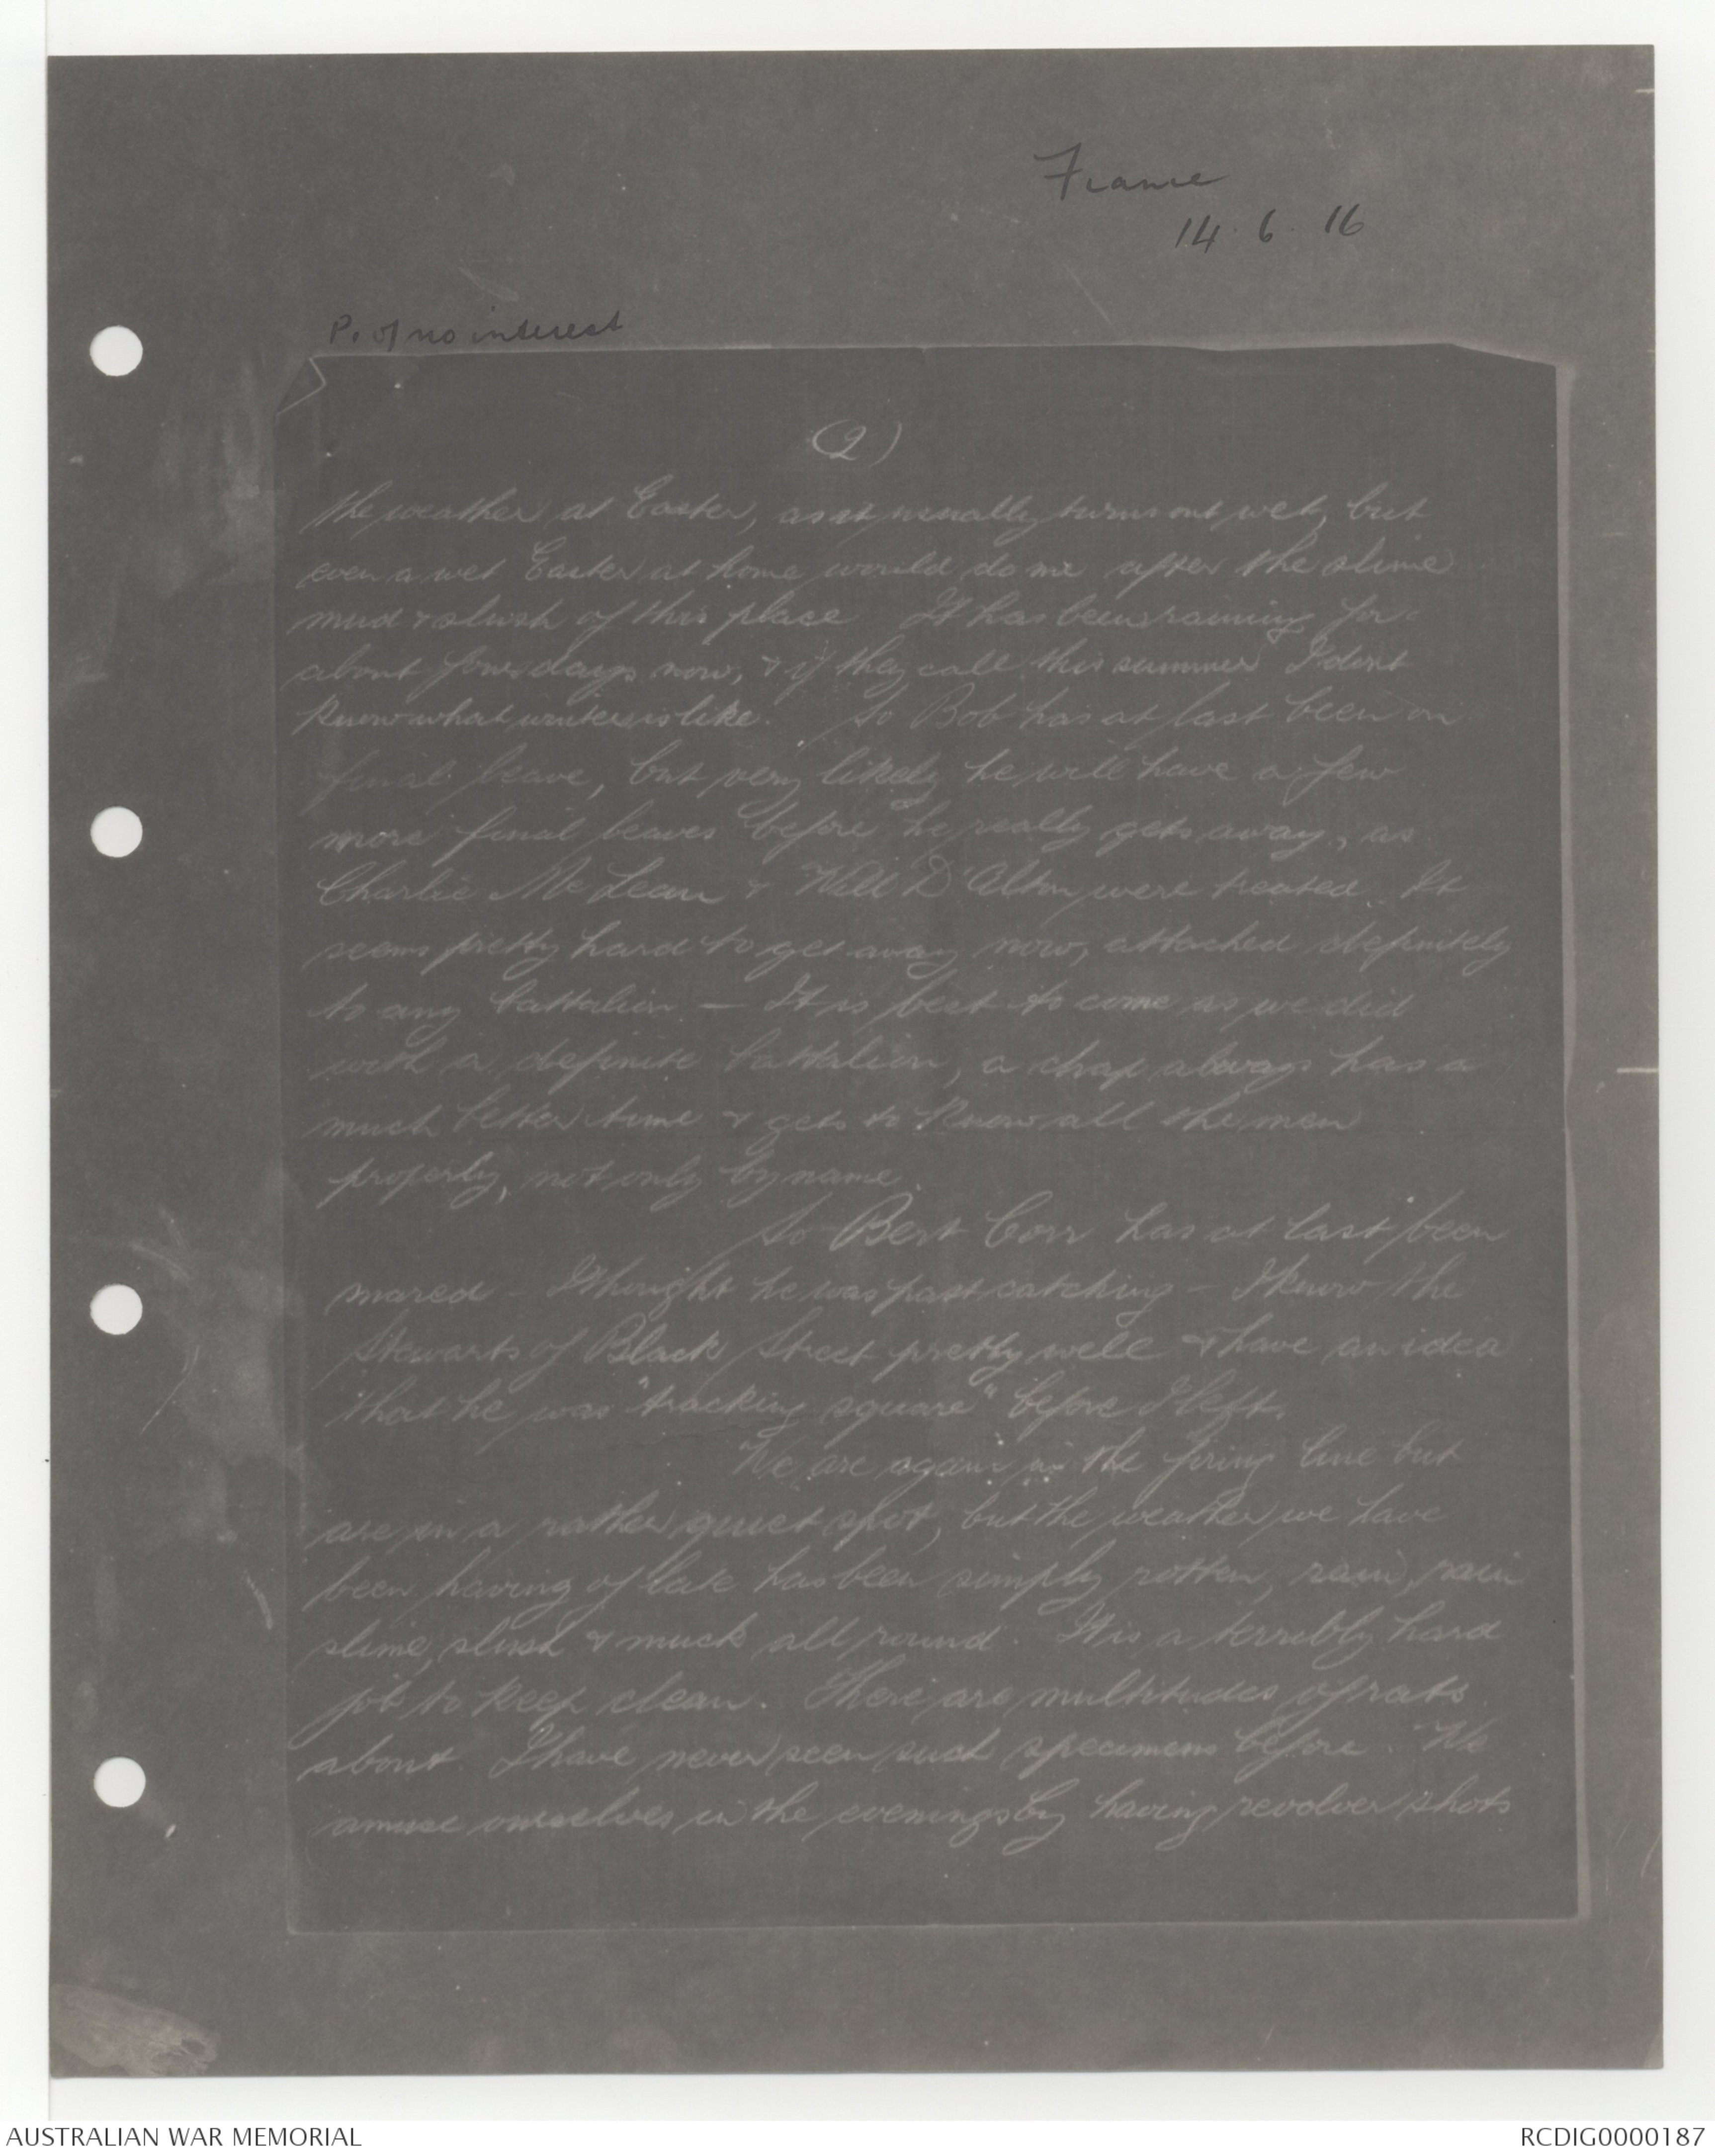 France
14.6.16
P. of no interest
(2)
the weather at Easter, as it usually turns out wet, but
even a wet Easter at home would do me after the slime
mud & slush of this place It has been raining for
about four days now, & if they call this summer I dont
know what winter is like. So Bob has at last been on
final leave, but very likely he will have a few
more final leaves before he really gets away, as
Charlie McLean & Will D'Alton were treated. It
seems pretty hard to get away now, attached definitely
to any battalion – It is best to come as we did
with a definite battalion, a chap always has a
much better time & gets to know all the men
properly, not only by name.
So Bert Corr has at last been
mared – I thought he was past catching – I know the
Stewarts of Black Street pretty well & have an idea
that he was "tracking square" before I left.
We are again in the firing line but
are in a rather quiet spot, but the weather we have
been having of late has been simply rotten, rain, rain
slime, slush & muck all round. It is a terribly hard
job to keep clean. There are multitudes of rats
about. I have never seen such specimens before. We
amuse ourselves in the evenings by having revolver shots
AUSTRALIAN WAR MEMORIAL
RCDIG0000187